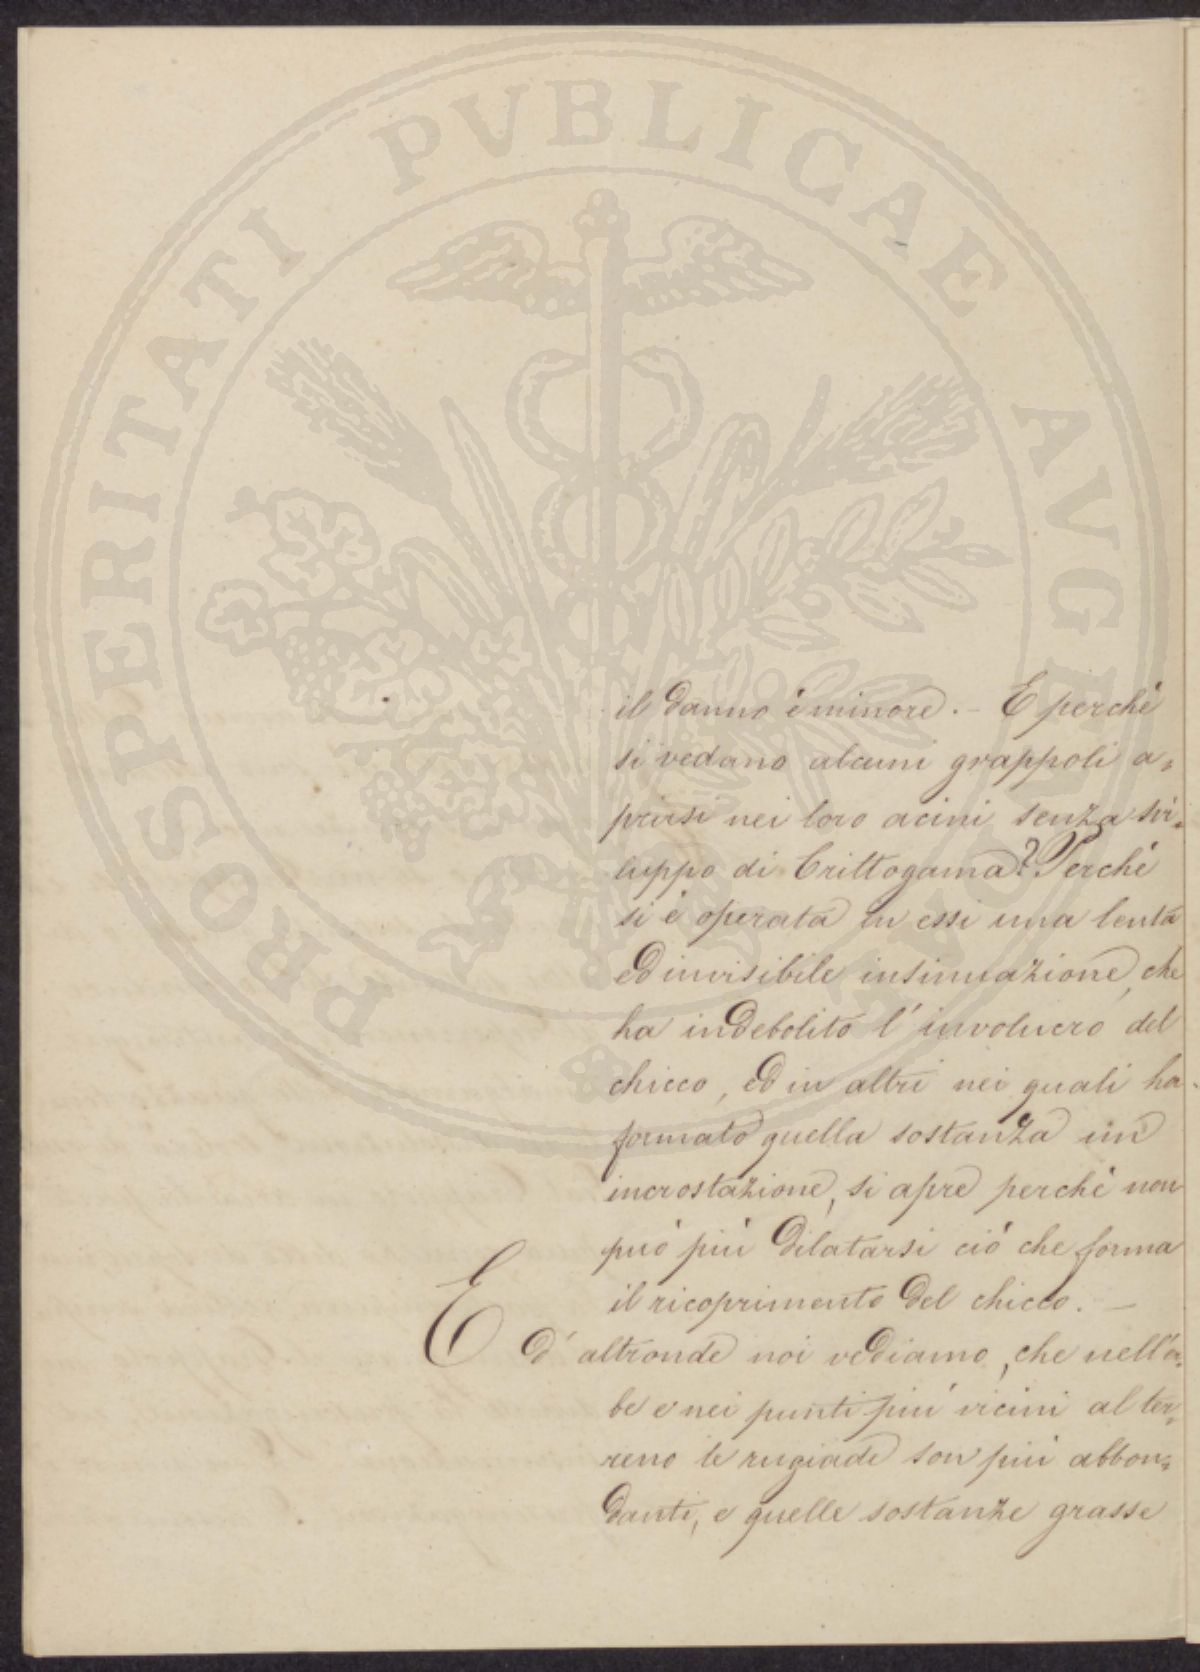 PROSPERITATI PUBLICAE AVGENDAE
il danno è minore. - E perchè
si vedano alcuni grappoli a=
prirsi nei loro acini senza svi=
luppo di Crittogama? Perchè
si è operata in essi una lenta
ed invisibile insinuazione, che
ha indebolito l'involucro del
chicco, ed in altri nei quali ha
formato quella sostanza un
incrostazione, si apre perchè non
può più dilatarsi ciò che forma
il ricoprimento del chicco. -
E d'altronde noi vediamo, che nell'a=
be e nei punti più vicini al ter=
reno le rugiade son più abbon=
danti, e quelle sostanze grasse